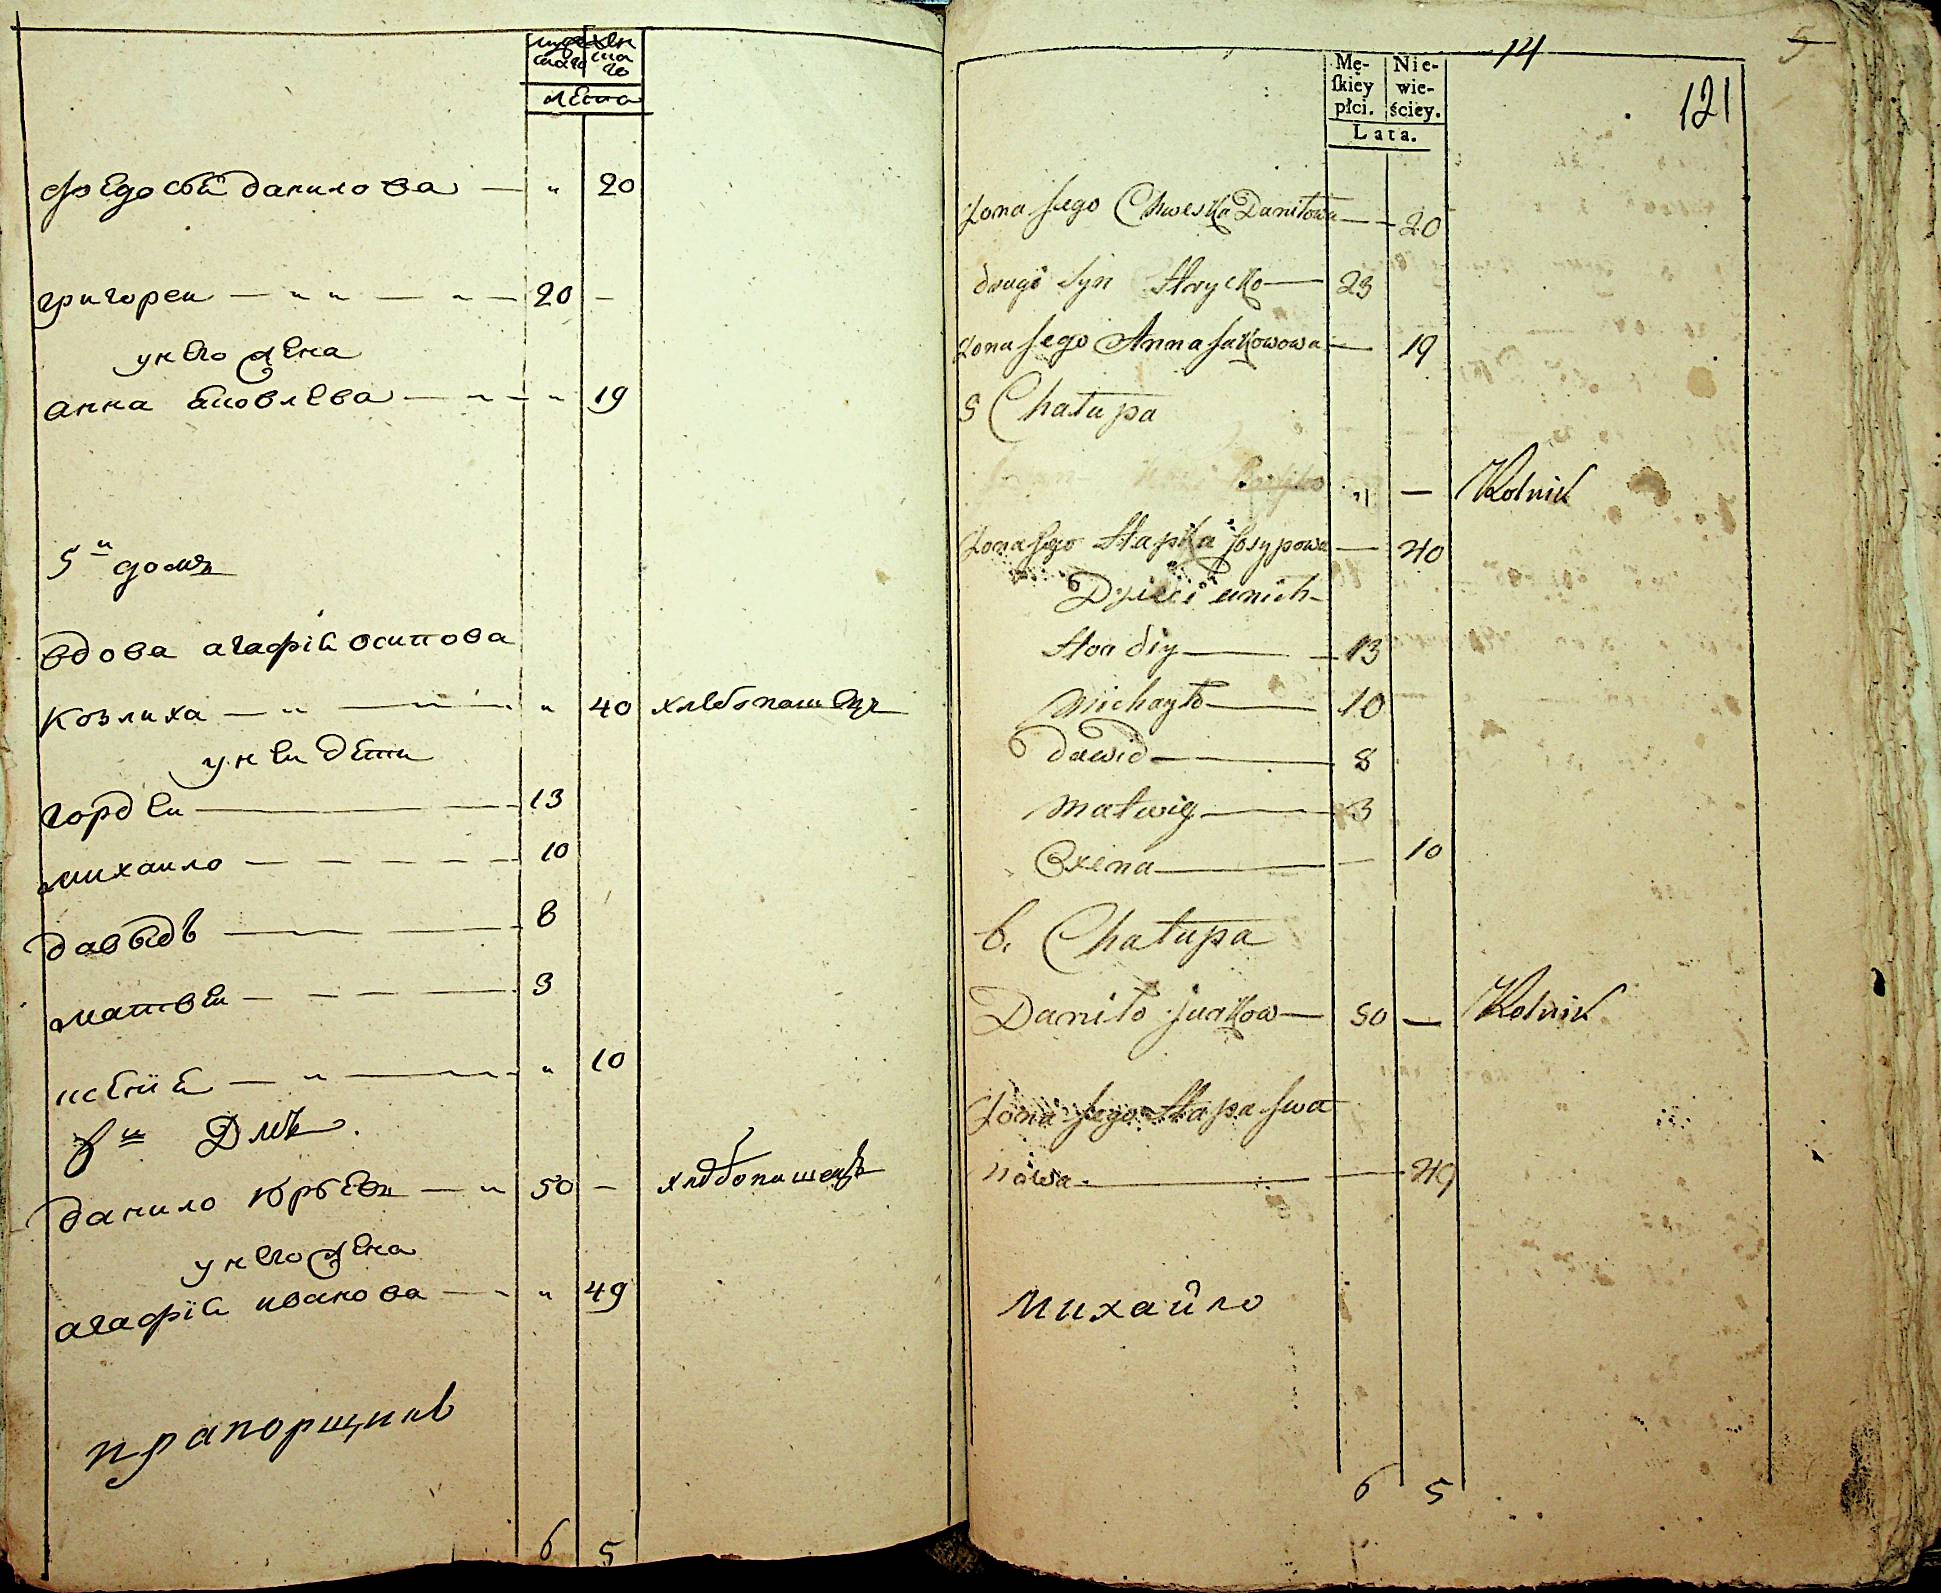 мужескаго женскаго
лѣта
федосья данилова — „ 20
григореи — „ „ — „ — 20 —
у него жена
анна яковлева — „ — „ 19
5й домъ
вдова агафiя осипова
козлиха — „ — „ 40 хлѣбопашецъ
у неи дети
гордеи — 13
михаило — 10
давыдъ — 8
матвеи — 3
ксенiя — „ — „ 10
6й Дмъ.
данило юрьевъ — „ 50 — хлѣбопашецъ
у него жена
агафiя иванова — „ 49
прапорщикъ
6 5
14 5
121
Mę-skiey płci. Nie-wie-ściey.
Lata.
Żona Jego Chweska Daniłowa — 20
drugi Syn Hrycko — 23
Żona Jego Anna Jakowowa — 19
5 Chałupa
„ — Rolnik
Żona Jego Hapka Josypowa — 40
Dzieci u nich
Hordiy — 13
Michayło — 10
Dawid — 8
Matwiy — 3
Oxena — 10
6. Chałupa
Daniło Jurkow — 50 — Rolnik
Żona Jego Hapa Iwa
nowa — 49
Михайло
6 5